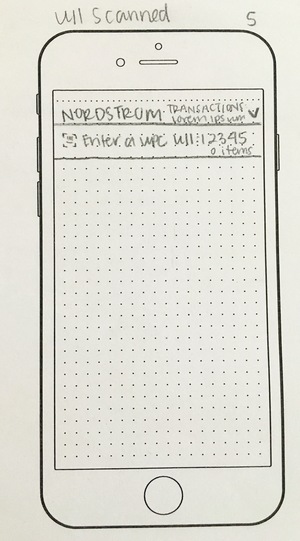 WII Scanned 5
NORDSTROM TRANSACTIONS
lorem ipsum
Enter a UPC WII:12345
0 items